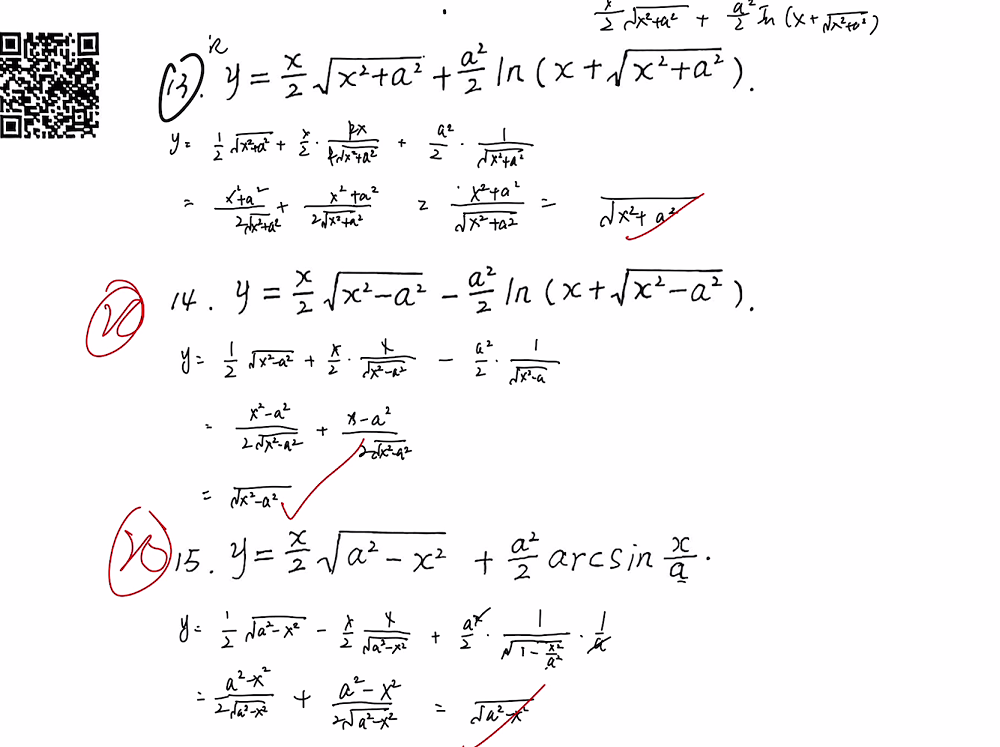 x/2 √(x²+a²) + a²/2 ln (x+√(x²+a²))
13. y = x/2 √(x²+a²) + a²/2 ln (x+√(x²+a²)).
y= 1/2 √(x²+a²) + x/2 · 2x/(2√(x²+a²)) + a²/2 · 1/√(x²+a²)
= (x²+a²)/(2√(x²+a²)) + (x²+a²)/(2√(x²+a²)) = (x²+a²)/√(x²+a²) = √(x²+a²)
14. y = x/2 √(x²-a²) - a²/2 ln (x+√(x²-a²)).
y= 1/2 √(x²-a²) + x/2 · x/√(x²-a²) - a²/2 · 1/√(x²-a)
= (x²-a²)/(2√(x²-a²)) + (x-a²)/(2√(x²-a²))
= √(x²-a²)
15. y = x/2 √(a²-x²) + a²/2 arcsin x/a.
y= 1/2 √(a²-x²) - x/2 x/√(a²-x²) + a²/2 · 1/√(1-x²/a²) · 1/a
= (a²-x²)/(2√(a²-x²)) + (a²-x²)/(2√(a²-x²)) = √(a²-x²)